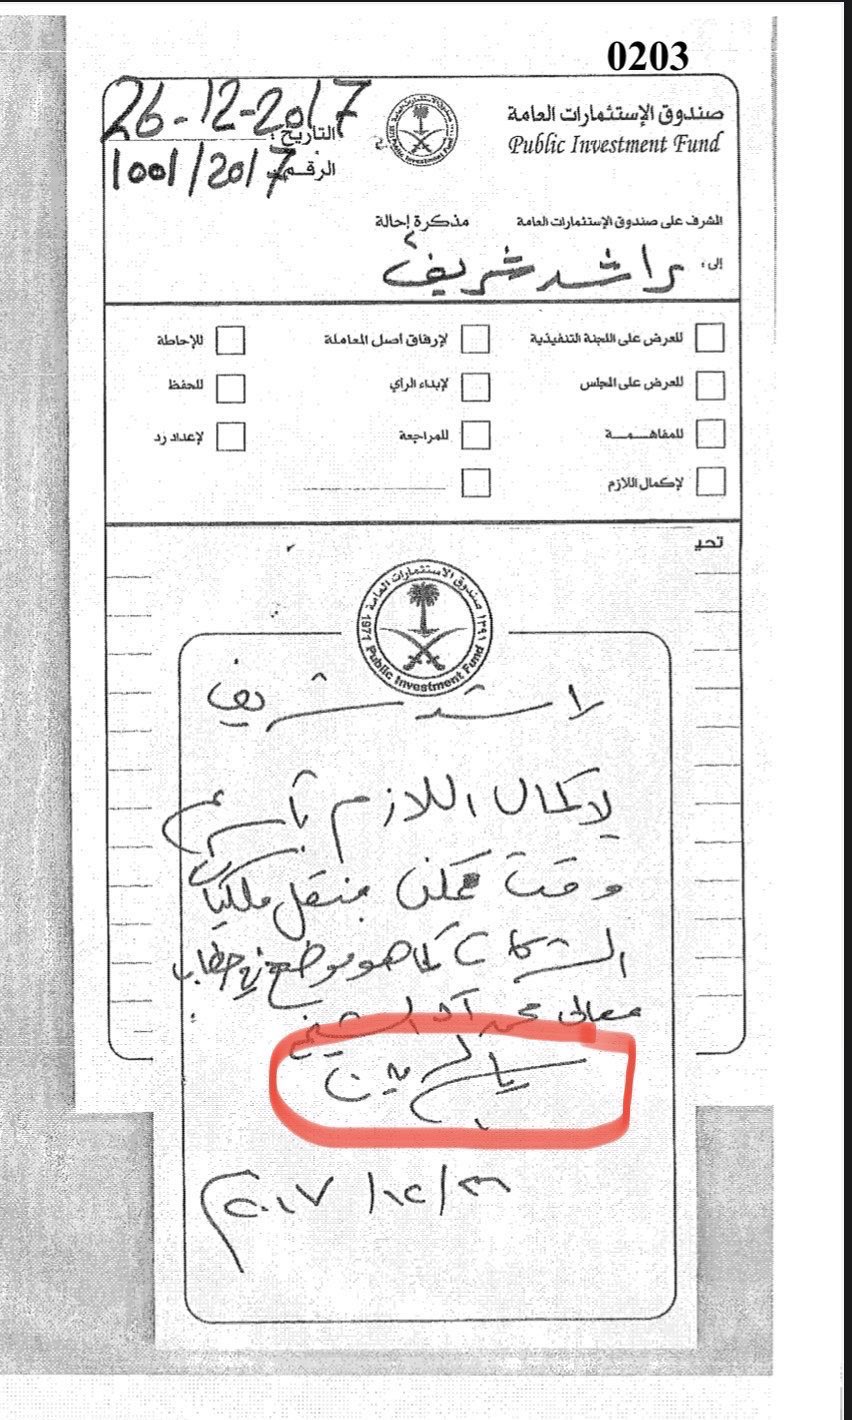 0203
صندوق الإستثمارات العامة
Public Investment Fund
التاريخ: 26-12-2017
الرقم: 1001/2017
المشرف على صندوق الإستثمارات العامة
مذكرة إحالة
إلى: راشد شريف
للعرض على اللجنة التنفيذية
لإرفاق أصل المعاملة
للإحاطة
للعرض على المجلس
لإبداء الرأي
للحفظ
للمفاهمة
للمراجعة
لإعداد رد
لإكمال اللازم
تحيـ
صندوق الاستثمارات العامة
١٣٩١ 1971
Public Investment Fund
راشد شريف
لاكمال اللازم بأسرع
وقت ممكن بنقل ملكيات
الشركات كما هو موضح في خطاب
معالي محمد آل الشيخ
ياسر
٢٠١٧/١٢/